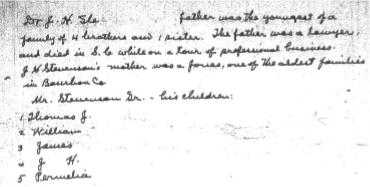 Dr J. H. Ste father was the youngest of a
family of 4 brothers and 1 sister. The father was a lawyer,
and died in S. C while on a tour of professional business.
J H Stevenson's mother was a , one of the oldest families
in Bourbon Co
Mr. Stevenson Sr. - his children:
1 Thomas J.
2 William
3 James
4 J H.
5 Permelia